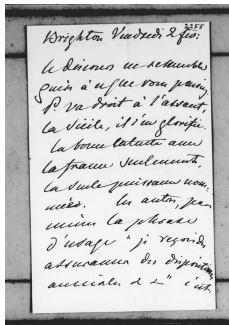 2255
Brighton Vendredi 2 fev:
le discours ne ressemble
guère à ce que vous
P. va droit à l'assaut,
la Sicile, il s'en glorifie.
la bonne entente avec
la france seulement.
la seule puissance nom-
mée. les autres, pas
même la phrase
d'usage "je reçois des
assurances des dispositions
amicales &c &c" c'est